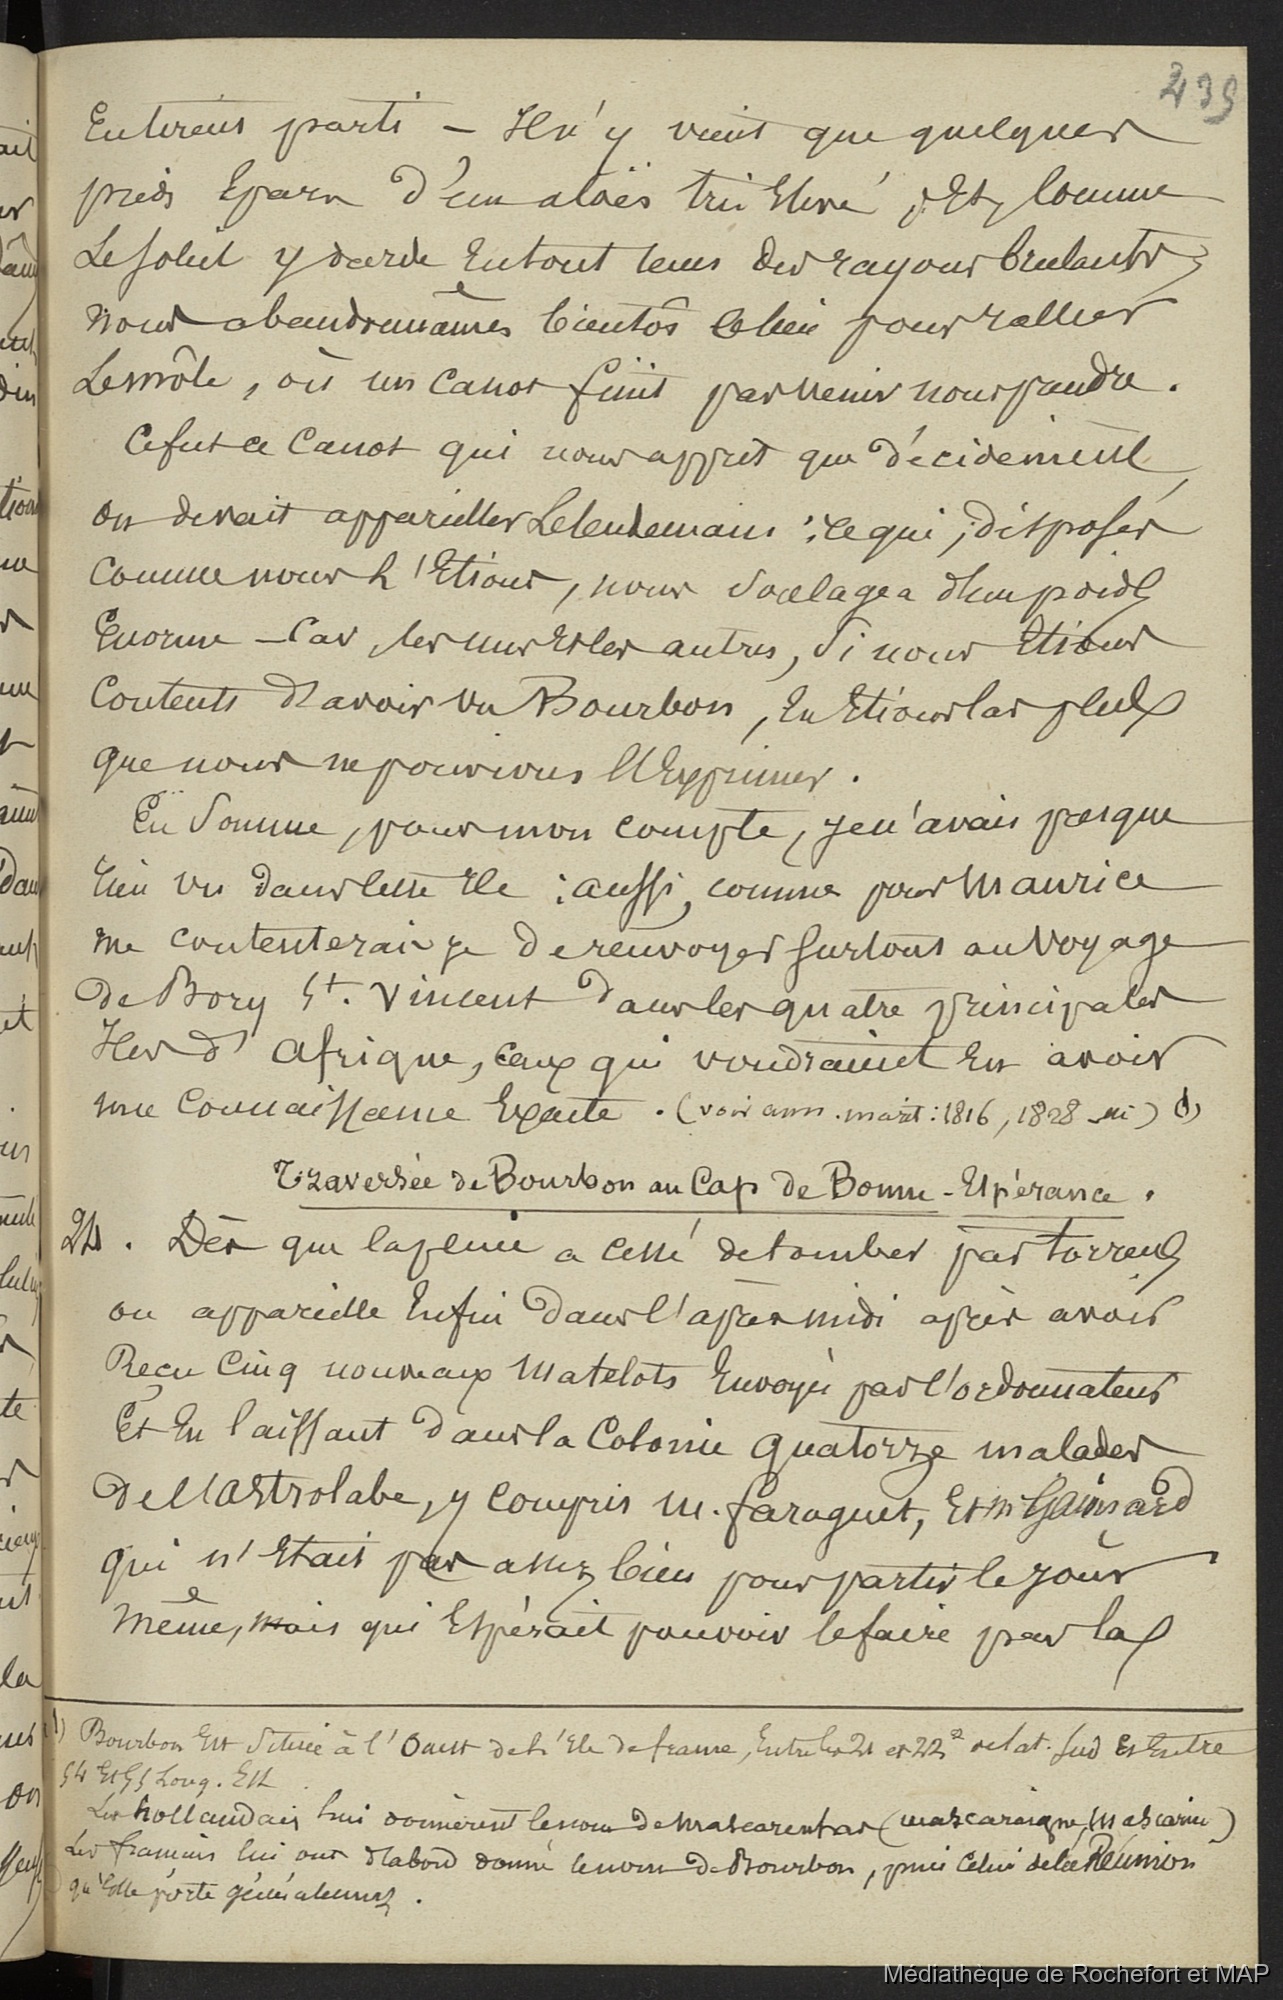 239
En tireras parti – Il n'y vient que quelques
pieds Epars d'un aloës très Elevé, Et, Comme
Le Soleil y darde En tout tems des rayons brulants,
nous abandonnâmes bientôt ce lieu pour rallier
Le môle, où un Canot finit par venir nous prendre.
Ce fut ce Canot qui nous apprit que décidément
on devait appareiller Le lendemain : ce qui, disposés
Comme nous L'Etions, nous soulagea d'un poids
Enorme – Car, les uns Et les autres, Si nous Etions
Contents d'avoir vu Bourbon, En Etions las plus
que nous ne pouvions L'Exprimer.
En Somme, pour mon Compte, Je n'avais presque
rien vu dans cette Ile : aussi, comme pour Maurice
me contenterai-je De renvoyer Surtout au Voyage
de Bory St. Vincent dans les quatre principales
Iles d'Afrique, ceux qui voudraient En avoir
une Connaissance Exacte. (voir ann. marit : 1816, 1828 ) (1)
Traversée de Bourbon au Cap de Bonne-Espérance.
24. Dès que la pluie a cessé de tomber par torrents
on appareille Enfin dans l'après midi après avoir
Reçu Cinq nouveaux Matelots Envoyés par l'ordonnateur
Et En laissant dans la Colonie quatorze malades
De L'Astrolabe, y compris M. faraguet, Et Mr Gaimard
qui n'Etait pas assez bien pour partir le Jour
même, mais qui Espérait pouvoir le faire par la
1) Bourbon Est Située à l'Ouest de L'Ile de france, Entre les 21 et 22° de lat. Sud Et Entre
54 Et 55 Long. Est.
Les hollandais lui donnèrent le nom de Mascarenhas (mascaraigne, Mascarin)
Les francais lui ont d'abord donné le nom De Bourbon, puis Celui de la Réunion
qu'Elle porte généralement.
Médiathèque de Rochefort et MAP